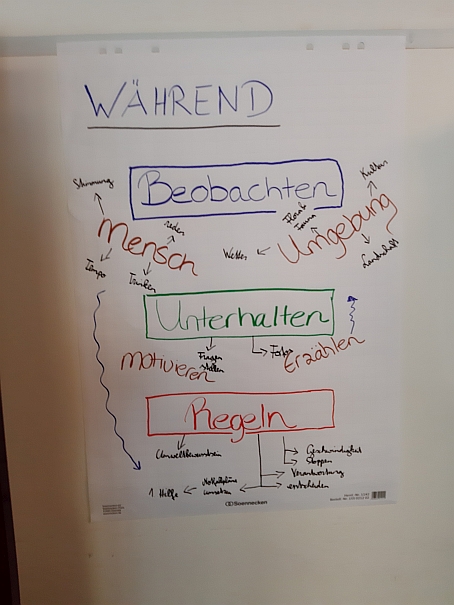 WÄHREND
Beobachten
Stimmung
Kultur
Mensch
reden
Flora
Fauna
Umgebung
Wetter
Landschaft
Tempo
Trinken
Unterhalten
Fragen
stellen
Motivieren
Erzählen
Regeln
Umweltbewusstsein
Geschwindigkeit
Stoppen
Verantwortung
entscheiden
Notfallpläne
umsetzen
1 Hilfe
Soennecken